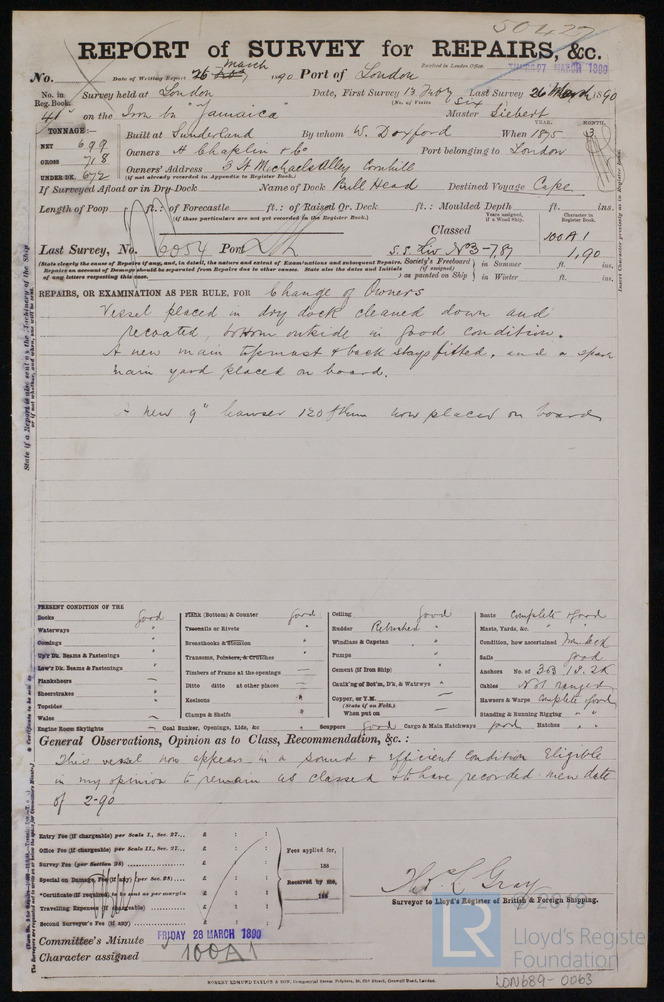 50422
REPORT of SURVEY for REPAIRS, &c.
No. Date of Writing Report 26 March 1890 Port of London Received in London Office THURS 27 MARCH 1890
No. in Reg. Book. Survey held at London Date, First Survey 13 Last Survey 26 March 1890
(No. of Visits six
on the Iron bn "Jamaica" Master Siebert
TONNAGE:— Built at Sunderland By whom W. Doxford When 1875 YEAR. MONTH. 3
NET 699
GROSS 718 Owners A Chaplin & Co Port belonging to London
UNDER DK. 672 Owners' Address 3 St Michaels Alley Cornhill
(if not already recorded in Appendix to Register Book.)
If Surveyed Afloat or in Dry Dock Name of Dock Bull Head Destined Voyage Cape
Length of Poop ft.: of Forecastle ft.: of Raised Qr. Deck ft.: Moulded Depth ft. ins.
(if these particulars are not yet recorded in the Register Book.) Years assigned, if a Wood Ship. Character in Register Book.
Classed 100A1
Last Survey, No. 6054 Port S.S. Liv No3-7,87 1,90
(State clearly the cause of Repairs if any, and, in detail, the nature and extent of Examinations and subsequent Repairs.
Repairs on account of Damage should be separated from Repairs due to other causes. State also the dates and Initials
of any letters respecting this case.
Society's Freeboard (if assigned) as painted on Ship in Summer ft. ins.
in Winter ft. ins.
REPAIRS, OR EXAMINATION AS PER RULE, FOR Change of Owners
Vessel placed in dry dock cleaned down and
recoated, bottom outside in good condition.
A new main topmast & back stays fitted, and a spare
main yard placed on board.
A new 9" hawser 120 fthm now placed on board
PRESENT CONDITION OF THE
Decks Good
Waterways "
Comings "
Up'r Dk. Beams & Fastenings "
Low'r Dk. Beams & Fastenings "
Planksheers —
Sheerstrakes "
Topsides "
Wales —
Engine Room Skylights —
Plank (Bottom) & Counter Good
Treenails or Rivets "
Breasthooks & Stemson "
Transoms, Pointers, & Crutches "
Timbers of Frame at the openings —
Ditto ditto at other places —
Keelsons "
Clamps & Shelfs —
Coal Bunker, Openings, Lids, &c "
Ceiling Good
Rudder Rebushed "
Windlass & Capstan "
Pumps "
Cement (if Iron Ship) "
Caulk'ng of Bot'm, D'k, & Watrwys "
Copper, or Y.M. (State if on Felt.) —
When put on
Scuppers Good Cargo & Main Hatchways good Hatches "
Boats Complete & good
Masts, Yards, &c. " "
Condition, how ascertained from deck
Sails good
Anchors No. of 3 B 1 S. 2 K
Cables Not ranged
Hawsers & Warps Complete & good
Standing & Running Rigging " "
General Observations, Opinion as to Class, Recommendation, &c.:
This vessel now appears in a sound & efficient condition Eligible
in my opinion to remain as classed & to have recorded new date
of 2-90
Entry Fee (if chargeable) per Scale I., Sec. 27... £ : :
Office Fee (if chargeable) per Scale II., Sec. 27... £ : :
Survey Fee (per Section 28) £ : :
Special on Damage Fee (if any) (per Sec. 28)... £ : :
*Certificate (if required), to be sent as per margin £ : :
Travelling Expenses (if chargeable) £ : :
Second Surveyor's Fee (if any) £ : :
Fees applied for, 188
Received by me, 188
Thos L Gray
Surveyor to Lloyd's Register of British & Foreign Shipping.
Committee's Minute FRIDAY 28 MARCH 1890
Character assigned 100A1
ROBERT EDMUND TAYLOR & SON, Commercial Steam Printers, 19, Old Street, Goswell Road, London.
© 2019
LR
Lloyd's Register
Foundation
LDN689-0063